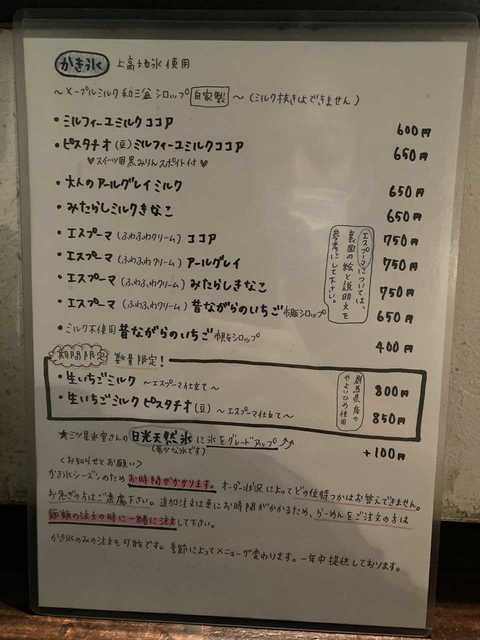 かき氷 上高地氷使用
〜メープルミルク和三盆シロップ 自家製 〜(ミルク抜きはできません)
・ミルフィーユミルクココア 600円
・ピスタチオ(豆)ミルフィーユミルクココア 650円
♥スイーツ用黒みりんスポイト付♥
・大人のアールグレイミルク 650円
・みたらしミルクきなこ 650円
・エスプーマ(ふわふわクリーム)ココア 750円
・エスプーマ(ふわふわクリーム)アールグレイ 750円
・エスプーマ(ふわふわクリーム)みたらしきなこ 750円
・エスプーマ(ふわふわクリーム)昔ながらのいちご シロップ 650円
・ミルク不使用 昔ながらのいちご シロップ 400円
エスプーマについては、
裏面の絵と説明文を
参考にして下さい。
期間限定 数量限定!
・生いちごミルク 〜エスプーマ仕立て〜 800円
・生いちごミルクピスタチオ(豆)〜エスプーマ仕立て〜 850円
群馬県産の
やよいひめ使用
★三ツ星氷室さんの日光天然氷に氷をグレードアップ⤴ +100円
(希少な氷です)
<お知らせとお願い>
かき氷シーズンのためお時間がかかります。オーダー状況によってどの位待つかはお答えできません。
お急ぎの方はご遠慮下さい。追加注文は更にお時間がかかるため、らーめんをご注文の方は
麺類の注文の時に一緒に注文して下さい。
かき氷のみの注文も可能です。季節によってメニューが変わります。一年中提供しております。